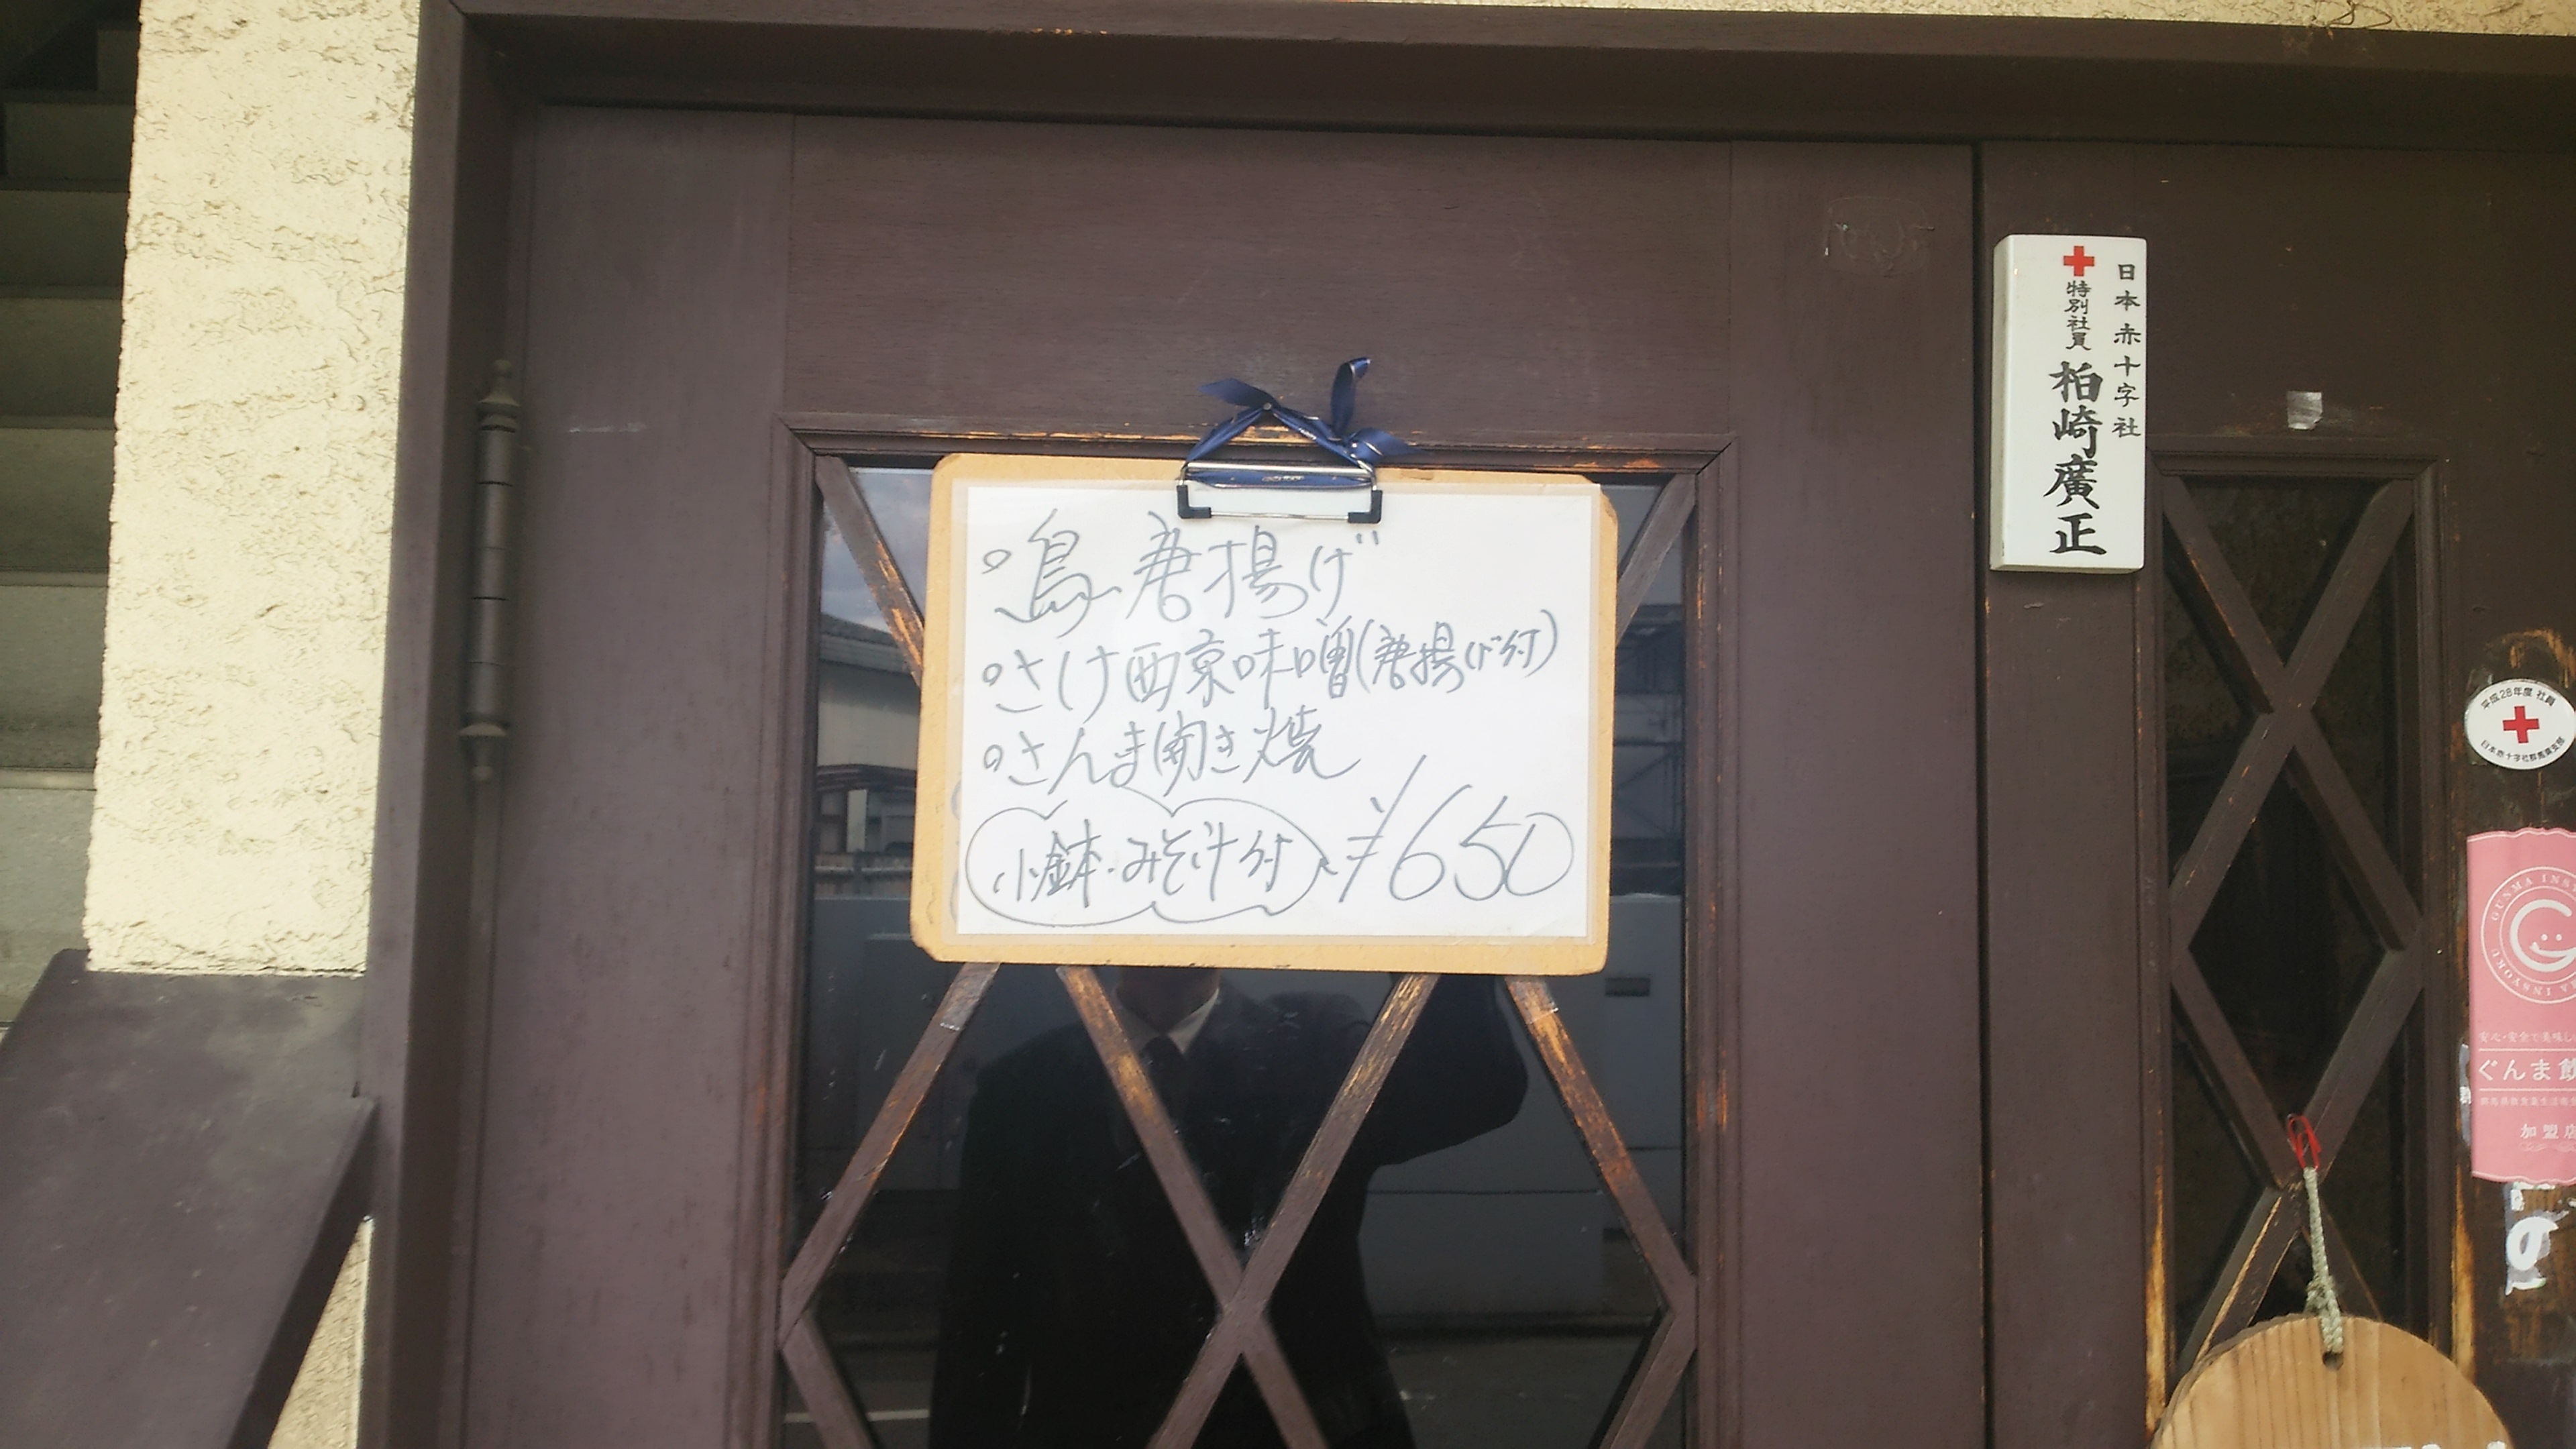 鳥唐揚げ
さけ西京味噌(唐揚げ付)
さんま開き焼
小鉢・みそ汁付 ¥650
日本赤十字社
特別社員 柏崎廣正
平成28年度 社員
日本赤十字社群馬県支部
GUNMA INS
安心・安全で美味し
ぐんま飲
加盟店
の